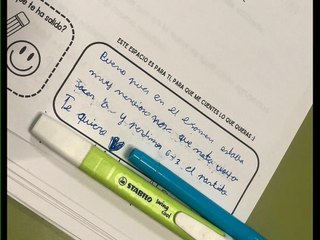 te ha salido?
ESTE ESPACIO ES PARA TI, PARA QUE ME CUENTES LO QUE QUIERAS :)
Bueno pues en el examen estaba
muy nervioso por que nota voy a
sacar y perdimos 5x3 el partido
Te quiero
STABILO
swing
cool